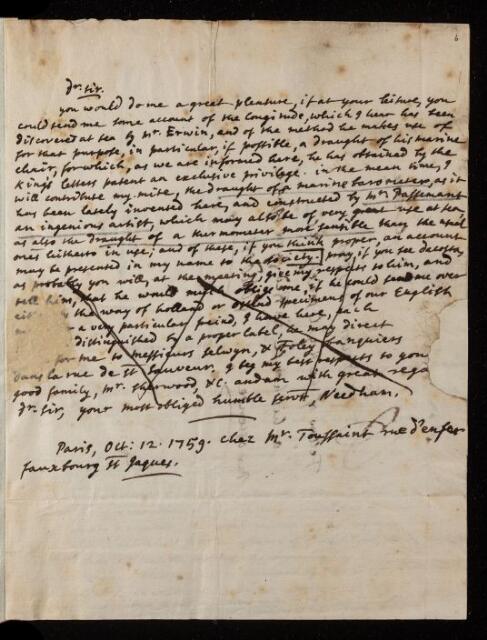 6
Dr. Sir.
you would do me a great pleasure, if at your leisure, you
could send me some account of the longitude, which I hear has been
discovered at sea by Mr. Erwin, and of the method he makes use of
for that purpose, in particular, if possible, a draught of his marine
chair, for which, as we are informed here, he has obtained by the
King's letters patent an exclusive privilege. in the mean time, I
will contribute my mite, the draught of a marine barometer, as it
has been lately invented here, and constructed by Mr. Passemant
an ingenious artist, which may also be of very great use at sea
as also the draught of a thermometer more sensible than the
ones hitherto in use; and of these, if you think proper, an account
may be presented in my name to the society. pray, if you see
as probably you will, at the meeting, give my respects to him, and
tell him, that he would much oblige me, if he could send me over
by the way of holland or ostend specimens of our English
a very particular friend, I have here, each
distinguished by a proper label, he may direct
for me to messieurs selwyn, & Foley banquiers
dans la rue de St sauveur. I beg my best respects to you
good family, Mr. sherwood, &c. and am with great rega
Dr. Sir, your most obliged humble servt, Needham.
Paris, Oct: 12. 1759. chez Mr. Toussaint rue d'enfer
fauxbourg St Jaques.